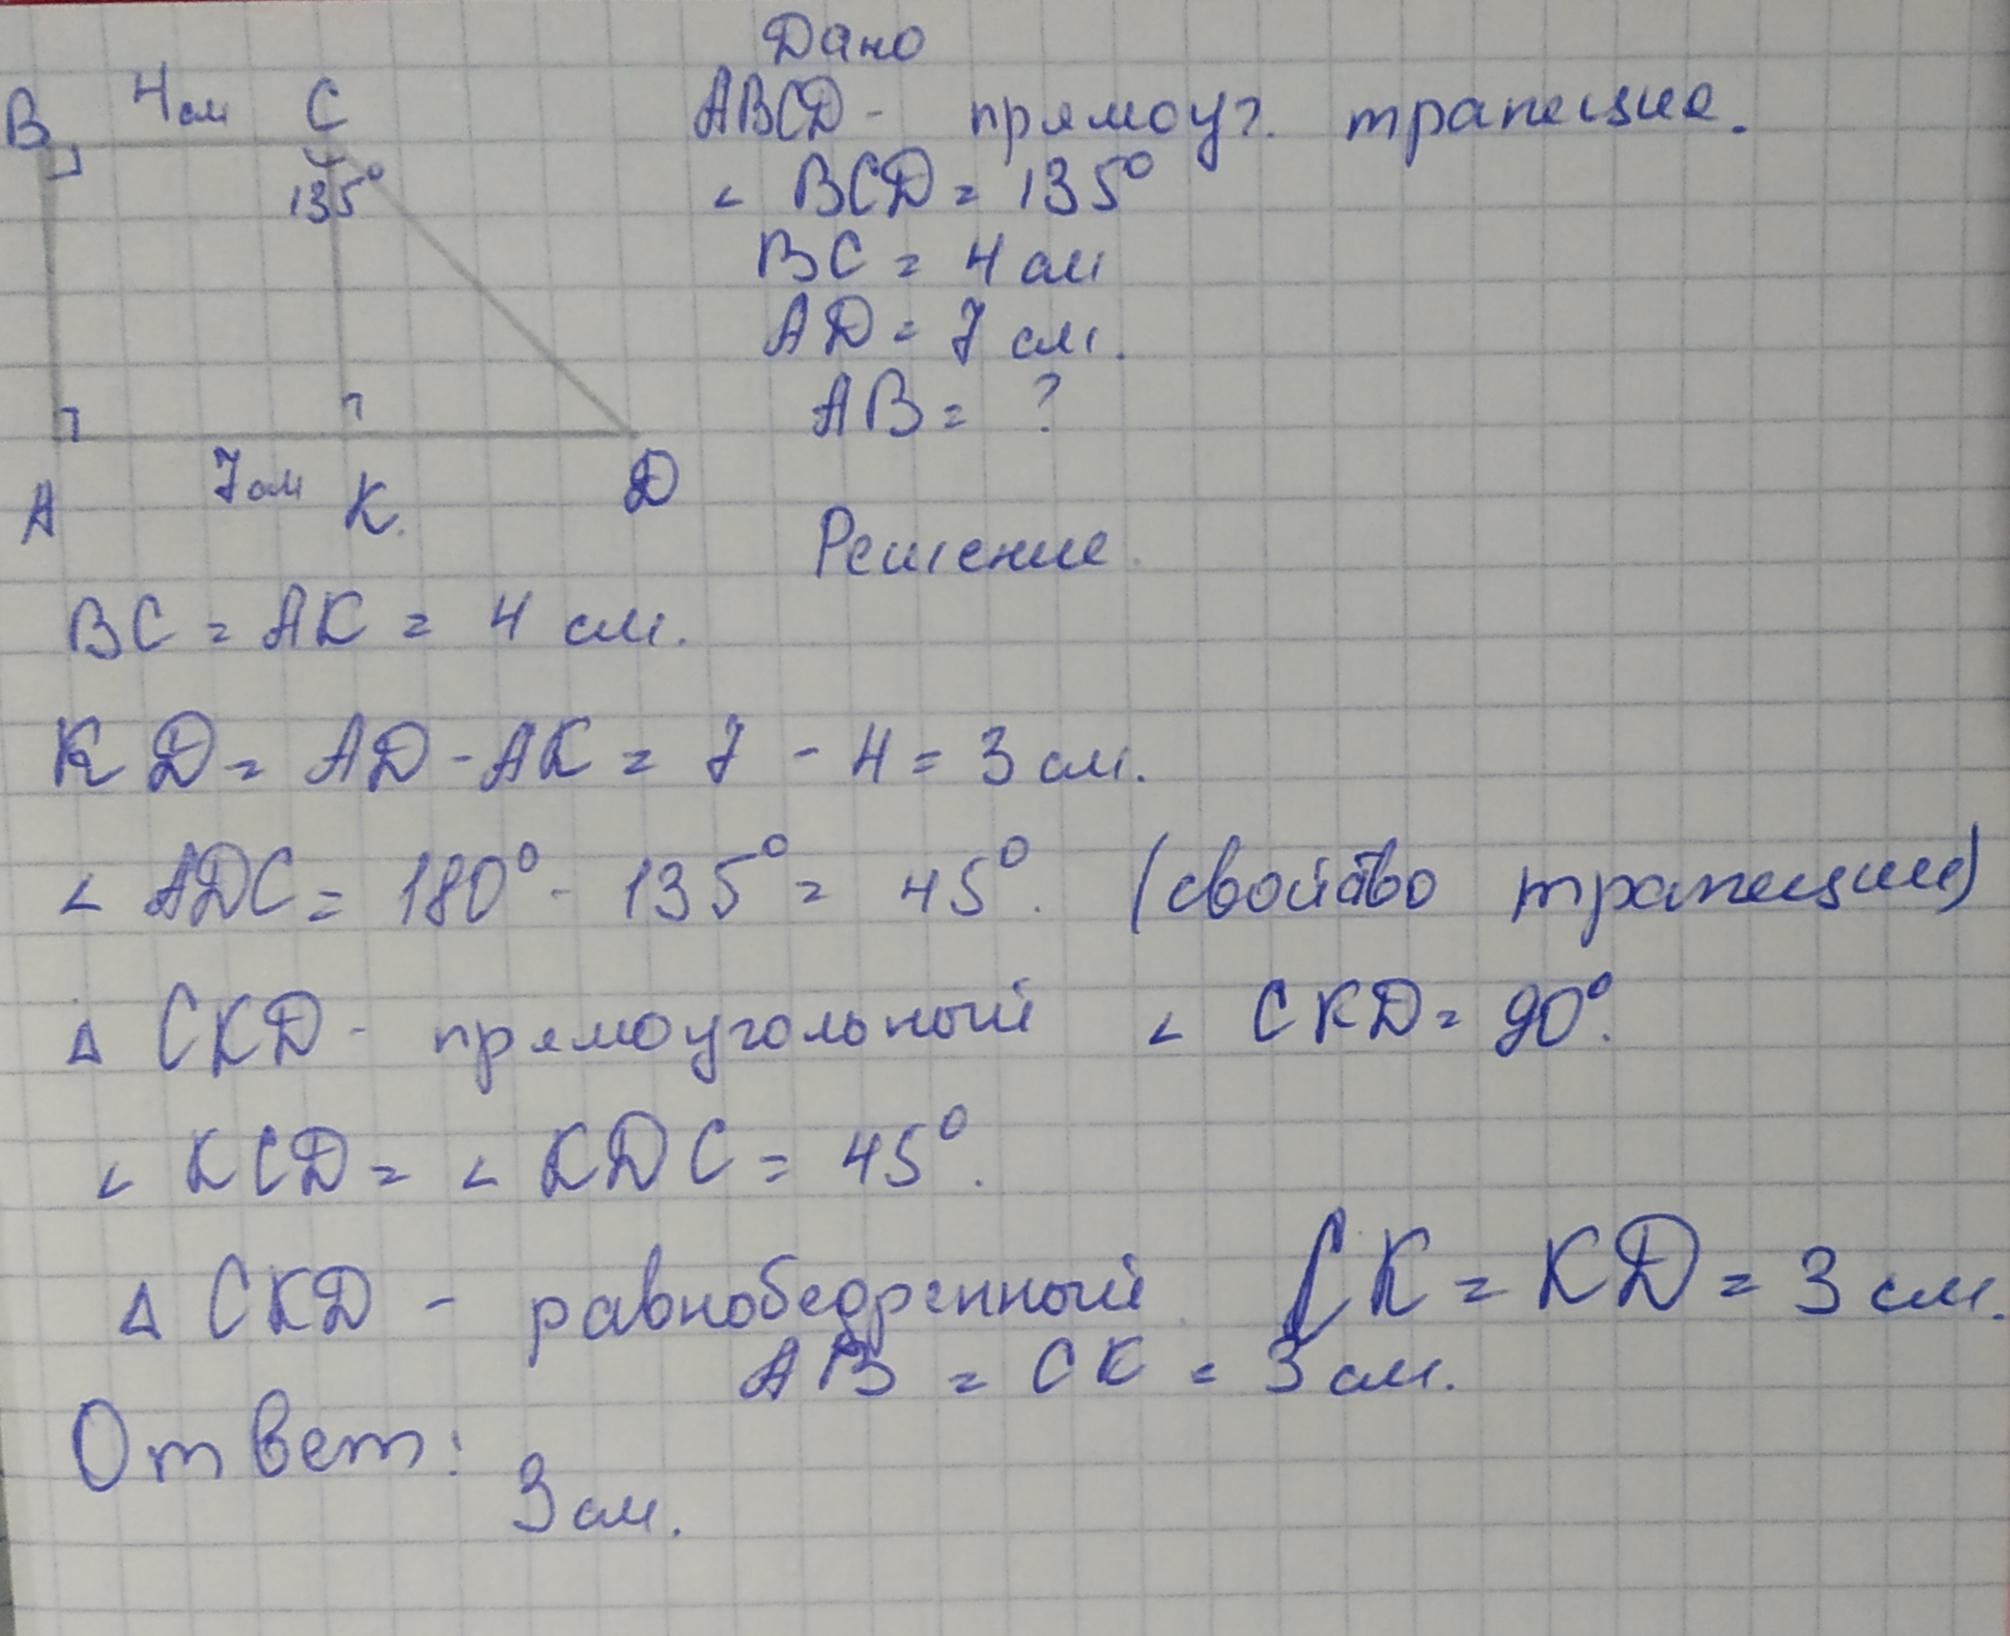 Дано
B 4 см C
ABCD - прямоуг. трапеция.
135°
∠ BCD = 135°
BC = 4 см
AD = 7 см.
AB = ?
A 7 см K. D
Решение.
BC = AK = 4 см.
KD = AD - AK = 7 - 4 = 3 см.
∠ ADC = 180° - 135° = 45°. (свойство трапеции)
Δ CKD - прямоугольный ∠ CKD = 90°.
∠ KCD = ∠ KDC = 45°.
Δ CKD - равнобедренный. CK = KD = 3 см.
AB = CK = 3 см.
Ответ: 3 см.